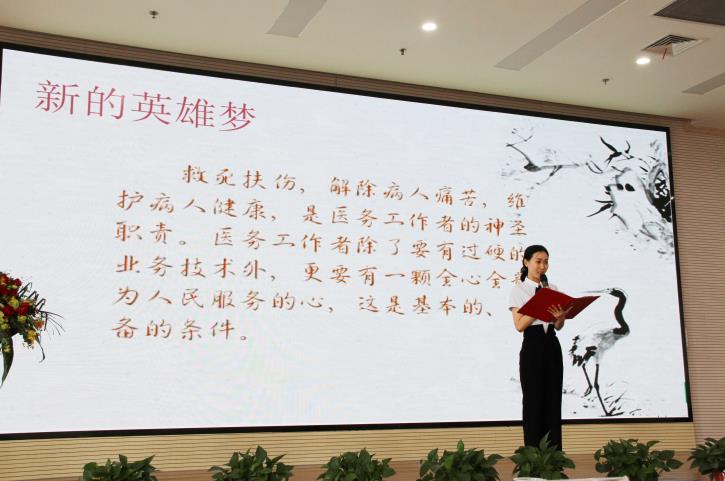 新的英雄梦
救死扶伤，解除病人痛苦，维
护病人健康，是医务工作者的神圣
职责。医务工作者除了要有过硬的
业务技术外，更要有一颗全心全
为人民服务的心，这是基本的、
备的条件。